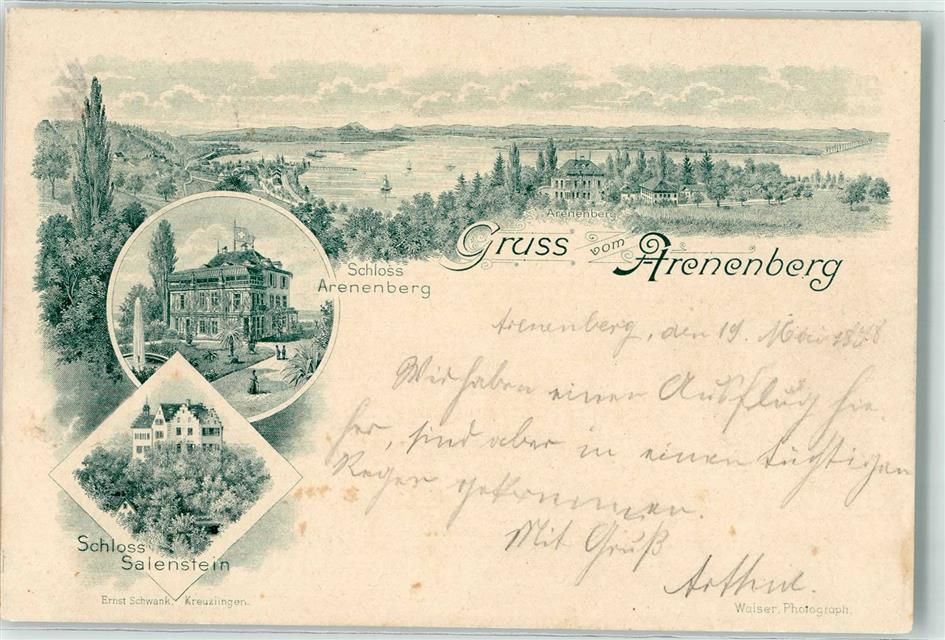 Arenenberg
Gruss vom Arenenberg
Schloss
Arenenberg
Arenenberg, den 19. Mai 1898
Wir haben einen Ausflug hie-
her, sind aber in einen tüchtigen
Regen gekommen.
Mit Gruß
Arthur.
Schloss
Salenstein
Ernst Schwank, Kreuzlingen.
Walser, Photograph.